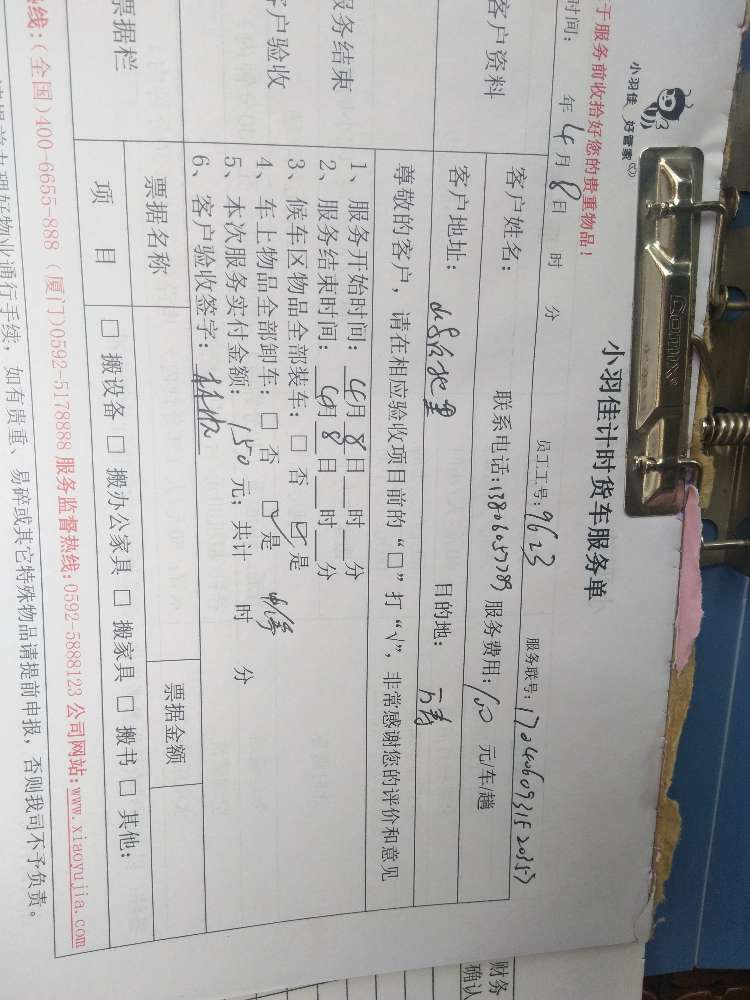 小羽佳 好管家
小羽佳计时货车服务单
于服务前收拾好您的贵重物品！
员工工号：9623 服务联号：
时间： 年 4月 8日 时 分
客户资料
客户姓名： 联系电话：13806057789 服务费用：150 元/车/趟
客户地址： 目的地：
服务结束
客户验收
尊敬的客户，请在相应验收项目前的“□”打“√”，非常感谢您的评价和意见
1、服务开始时间：4月8日__时__分
2、服务结束时间：4月8日__时__分
3、候车区物品全部装车：□ 否 ☑ 是
4、车上物品全部卸车：□ 否 ☑ 是
5、本次服务实付金额：150 元；共计 时 分
6、客户验收签字：
票据栏
票据名称 票据金额
项 目
□ 搬设备 □ 搬办公家具 □ 搬家具 □ 搬书 □ 其他：
热线：(全国)400-6655-888 (厦门)0592-5178888 服务监督热线：0592-5888123 公司网站：www.xiaoyujia.com
请提前办理好物业通行手续，如有贵重、易碎或其它特殊物品请提前申报，否则我司不予负责。
财务
确认
comix